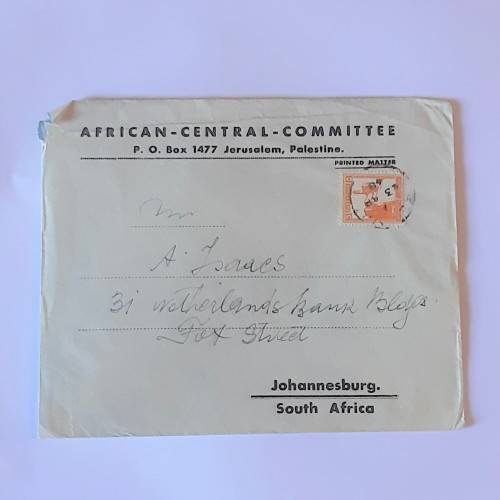 AFRICAN-CENTRAL-COMMITTEE
P. O. Box 1477 Jerusalem, Palestine.
PRINTED MATTER
Mr
A. Isaacs
31 Netherlands Bank Bldgs.
Fox Street
Johannesburg.
South Africa